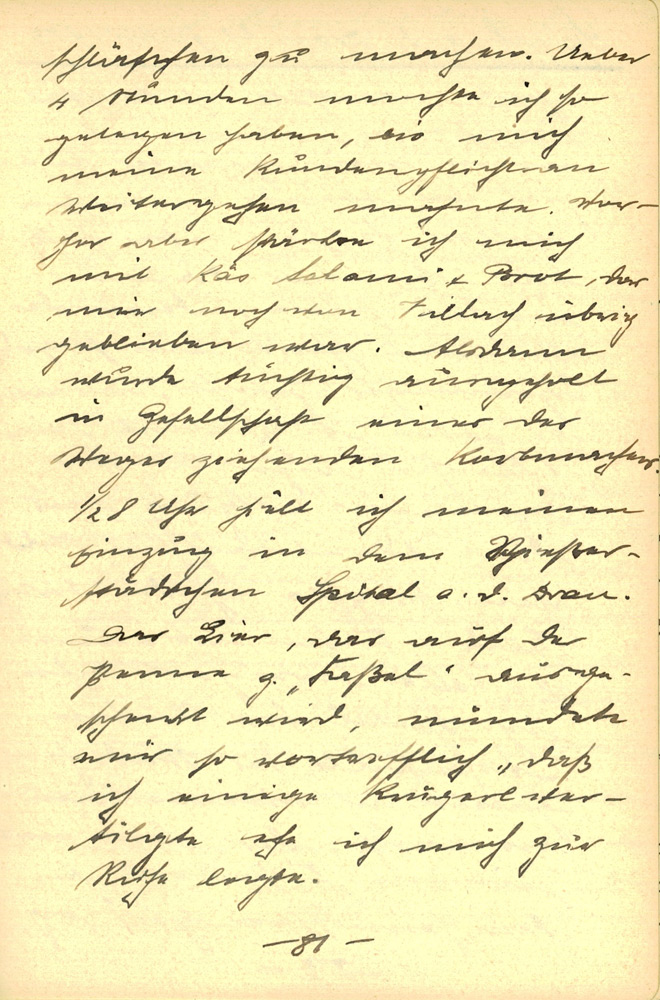 schläfchen zu machen. Ueber
4 Stunden mochte ich so
gelegen haben, bis mich
meine Kundenpflicht an
Weitergehen mahnte. Vor-
her aber stärkte ich mich
mit Käs Salami & Brot, das
mir noch von Villach übrig
geblieben war. Alsdann
wurde tüchtig ausgeholt
in Gesellschaft eines des
Weges ziehenden Korbmachers.
1/2 8 Uhr hielt ich meinen
Einzug in dem
städtchen Spital a. d. Drau.
Das Bier, das auf der
Penne z. „Faßel“ ausge-
schenkt wird, mundete
mir so vortrefflich, daß
ich einige Krügerl ver-
tilgte ehe ich mich zur
Ruhe legte.
- 81 -